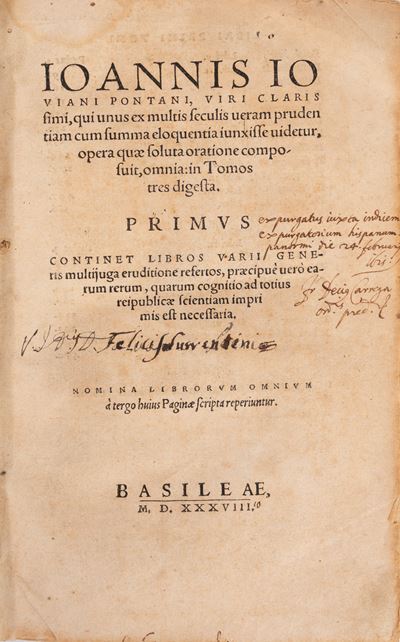 IOANNIS IO
VIANI PONTANI, VIRI CLARIS
simi, qui unus ex multis seculis ueram pruden
tiam cum summa eloquentia iunxisse uidetur,
opera quæ soluta oratione compo-
suit, omnia: in Tomos
tres digesta.
PRIMVS
expurgatus iuxta indicem
expurgatorium hispanum
panormi die 24 februarij
CONTINET LIBROS VARII GENE-
ris multijuga eruditione refertos, præcipuè uerò ea-
rum rerum, quarum cognitio ad totius
reipublicæ scientiam impri
mis est necessaria.
Felicis
NOMINA LIBRORVM OMNIVM
à tergo huius Paginæ scripta reperiuntur.
BASILEAE,
M. D. XXXVIII.